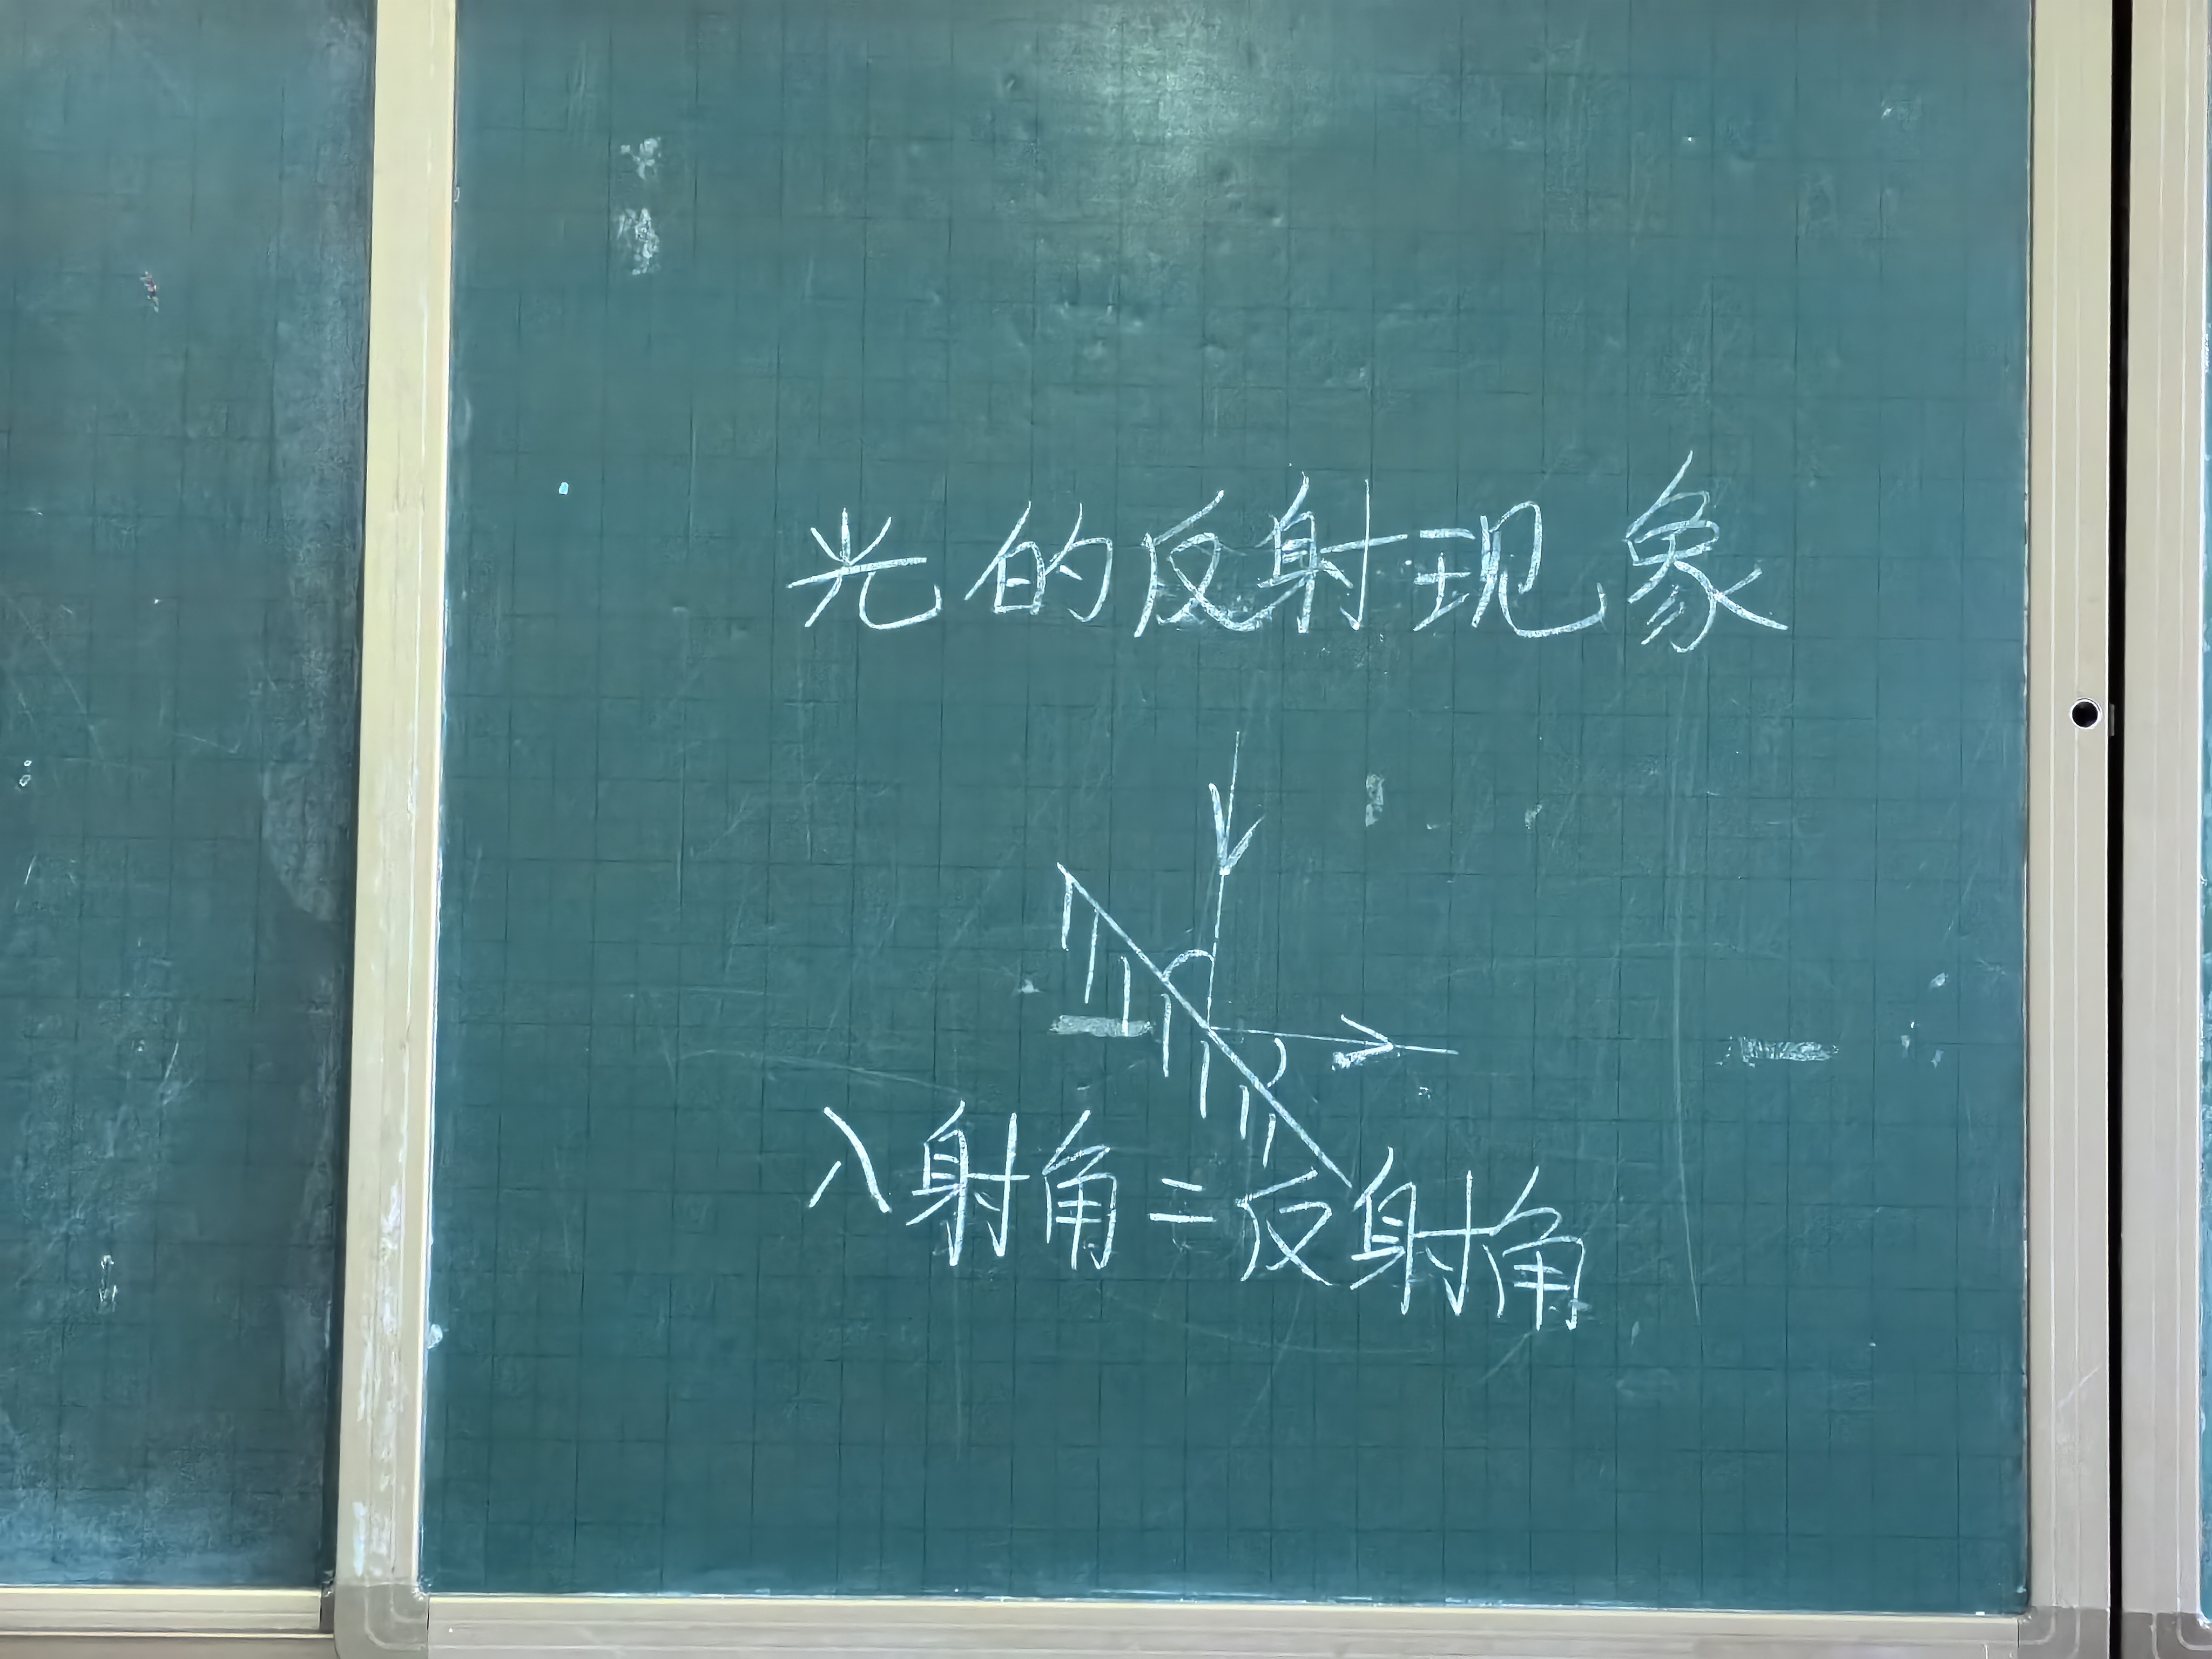 光的反射现象
入射角=反射角